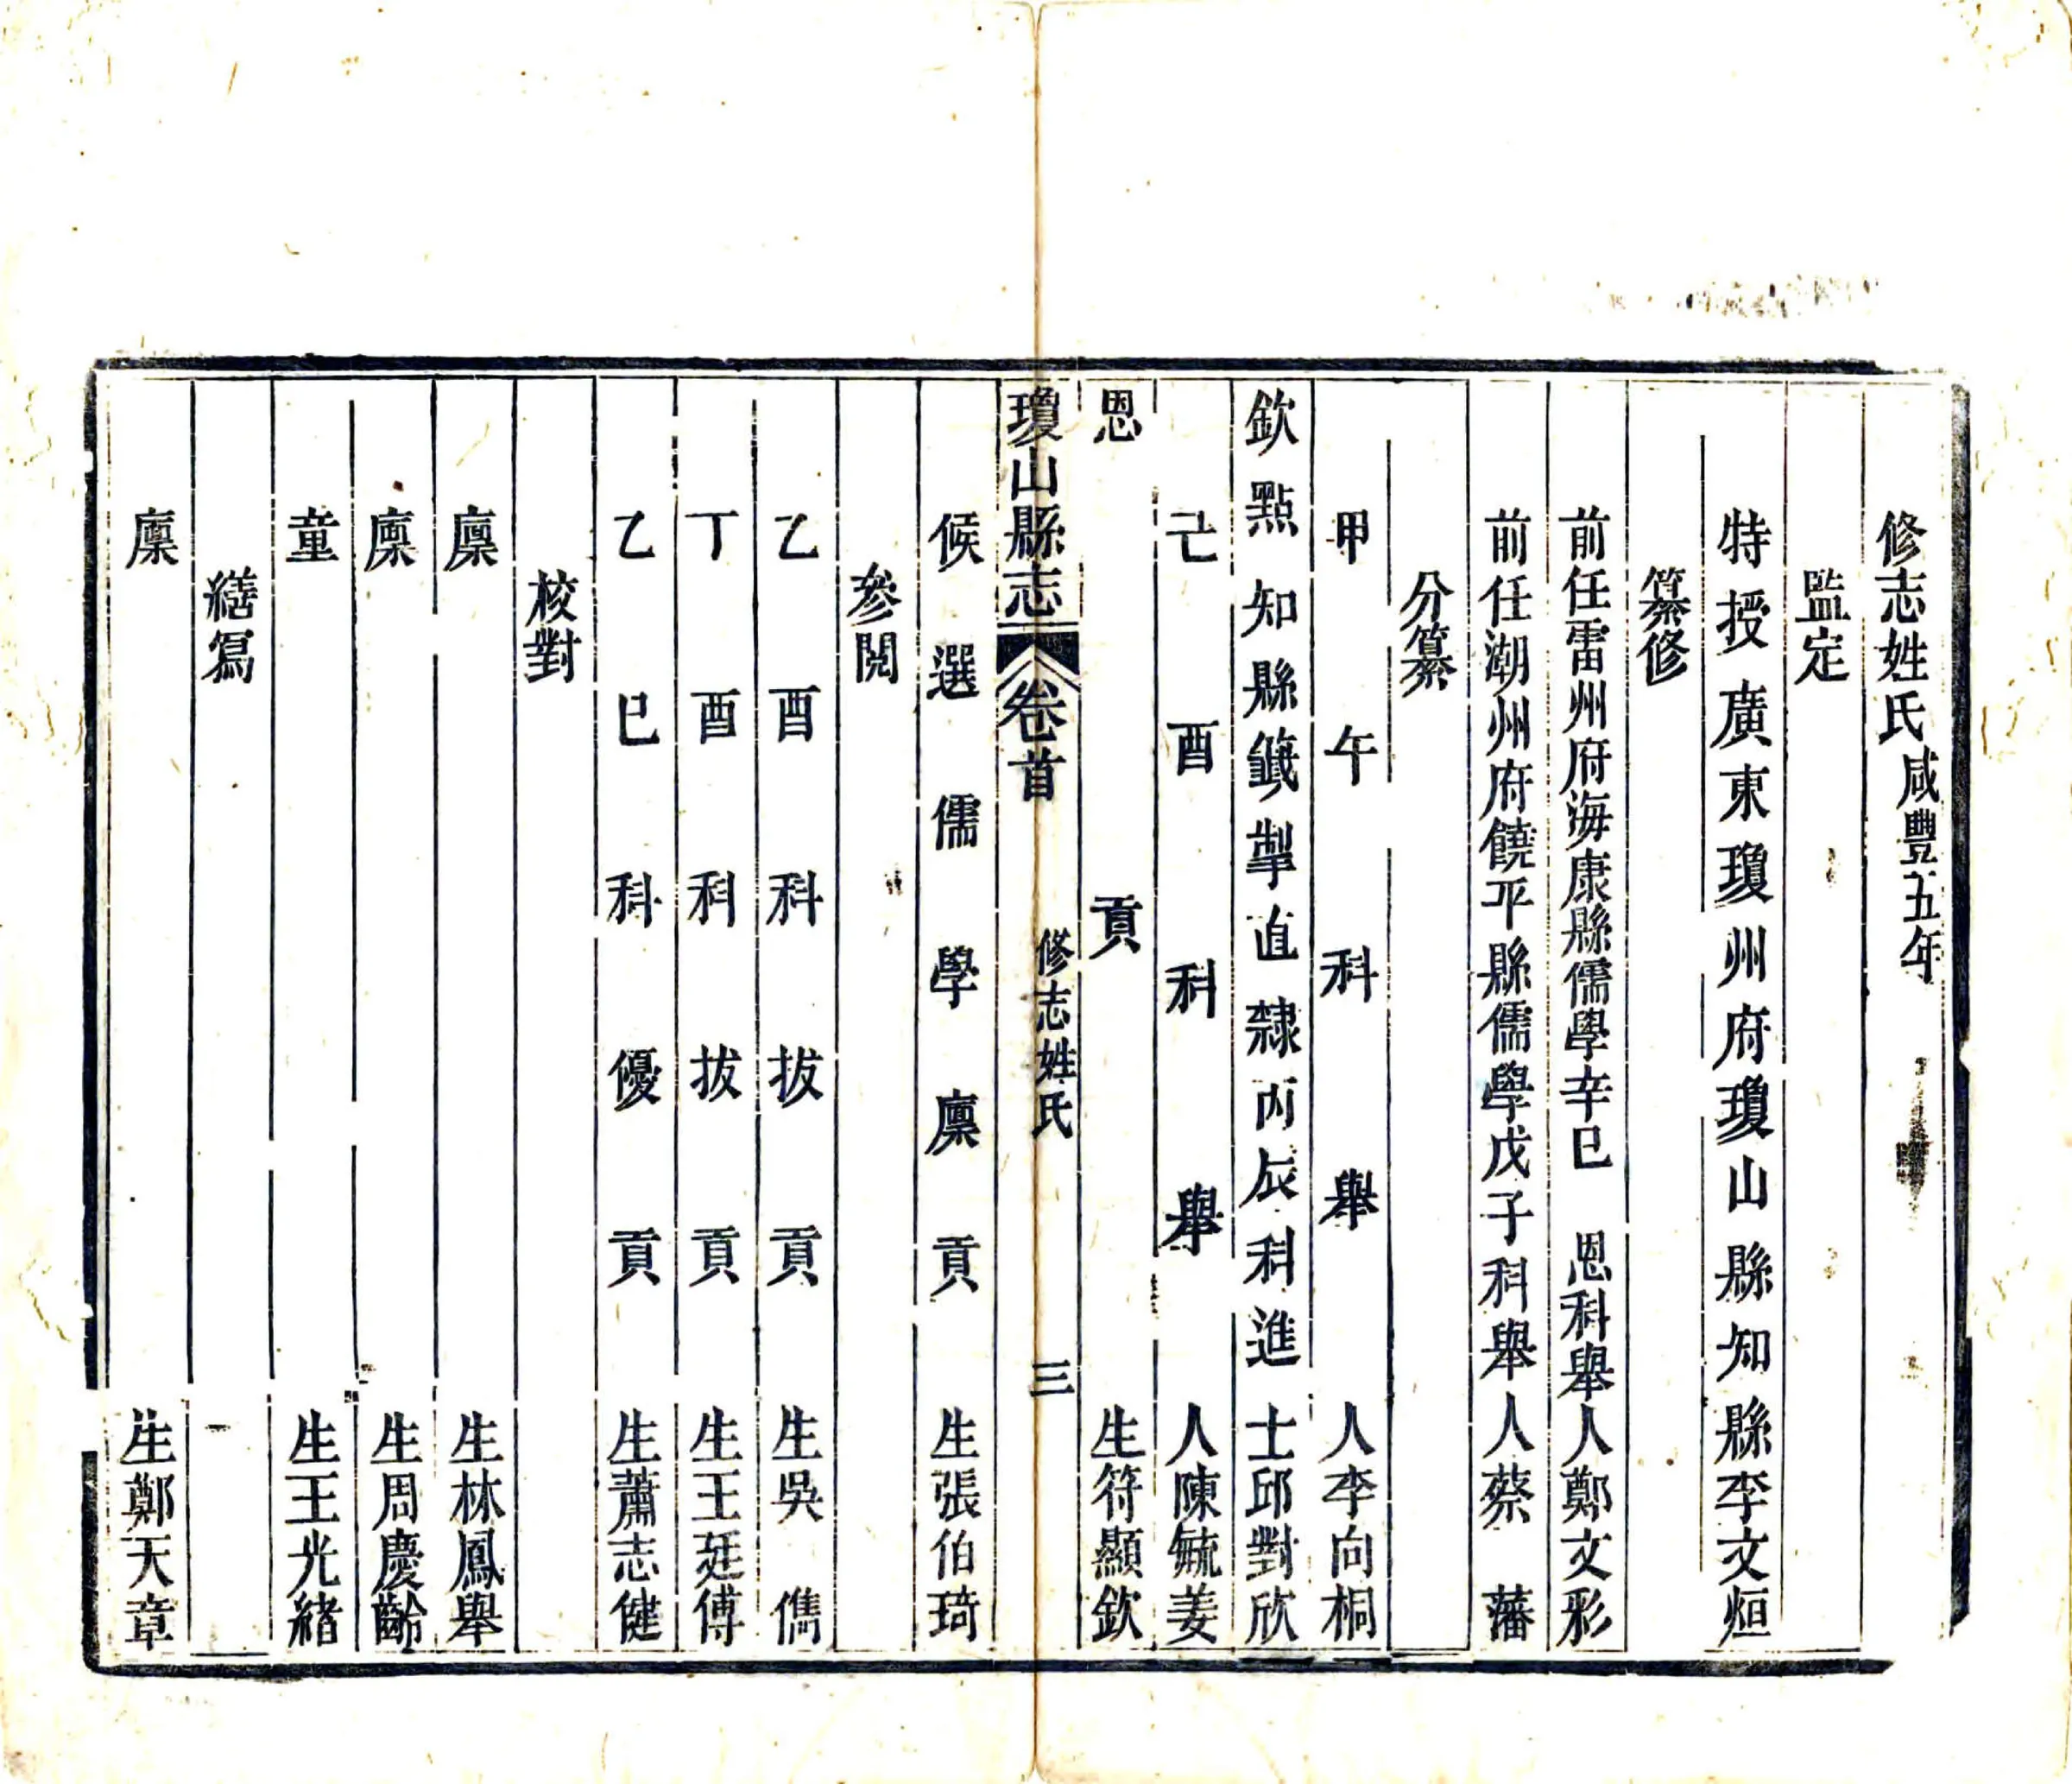 修志姓氏咸豐五年
監定
特授廣東瓊州府瓊山縣知縣李文烜
纂修
前任雷州府海康縣儒學辛巳 恩科舉人鄭文彩
前任潮州府饒平縣儒學戊子科舉人蔡 藩
分纂
甲午科舉人李向桐
欽點知縣籤掣直隸丙辰科進士邱對欣
己酉科舉人陳毓姜
恩貢生符顯欽
瓊山縣志 卷首 修志姓氏 三
候選儒學廩貢生張伯琦
參閱
乙酉科拔貢生吳 儁
丁酉科拔貢生王廷傅
乙巳科優貢生蕭志健
校對
廩生林鳳舉
廩生周慶齡
童生王光緒
繕寫
廩生鄭天章